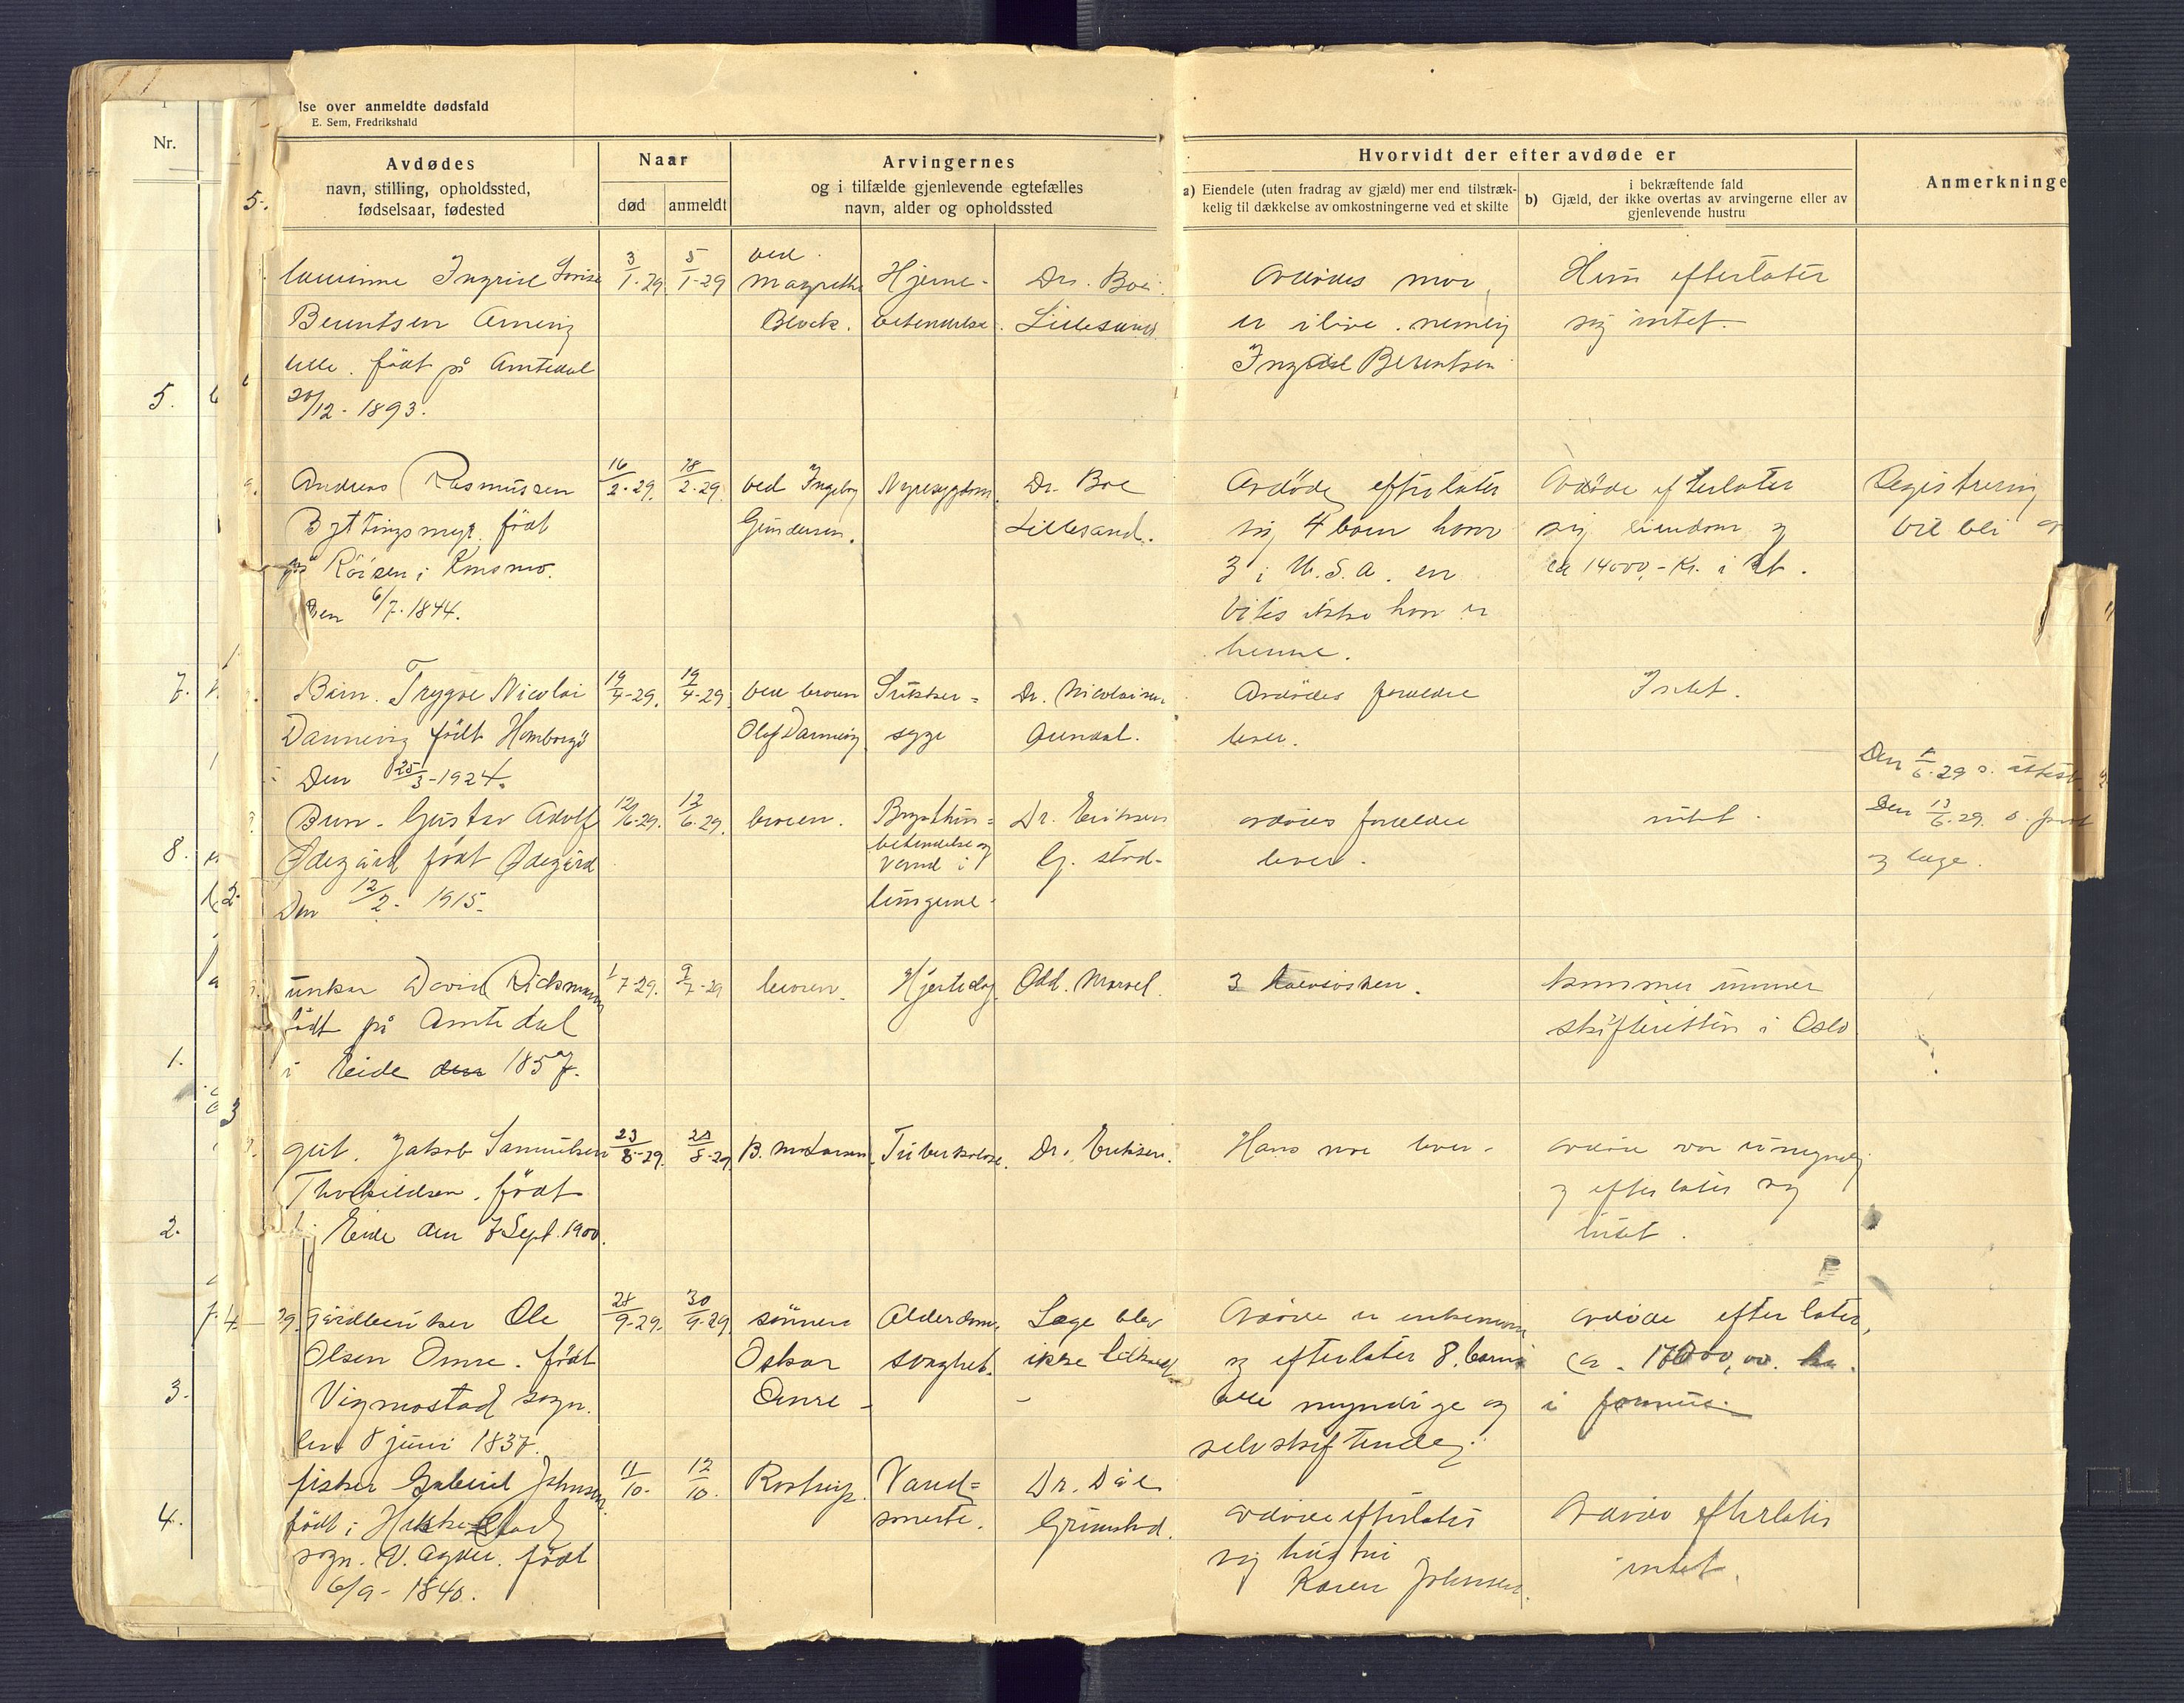 lse over anmeldte dødsfald
E. Sem, Fredrikshald
Nr.
Avdødes
navn, stilling, opholdssted,
fødselsaar, fødested
Naar
død
anmeldt
Arvingernes
og i tilfælde gjenlevende egtefælles
navn, alder og opholdssted
Hvorvidt der efter avdøde er
a) Eiendele (uten fradrag av gjæld) mer end tilstræk-
kelig til dækkelse av omkostningerne ved et skifte
i bekræftende fald
b) Gjæld, der ikke overtas av arvingerne eller av
gjenlevende hustru
Anmerkninge
5.
Ingrid Lovise
Berentsen
lille. født på Amtedal
20/12 - 1893.
3/1-29.
5/1-29
ved
Magrethe
Block.
Hjerne-
betendelse.
Dr. Boe.
Lillesand
Avdødes mor
er ilive. nemlig
Ingrid Berentsen
Hun efterlater
sig intet.
5.
Andreas Rasmussen
født
på i
Den 6/7. 1844.
16/2-29.
18/2-29.
ved Ingeborg
Gundersen.
Nyresygdom
Dr. Boe
Lillesand.
Avdøde efterlater
sig 4 barn hvorav
3 i U.S.A. en
vites ikke hvor er
henne.
Avdøde efterlater
sig eiendom og
ca 14000,- Kr. i
Registrering
vil bli
7.
Barn. Trygve Nicolai
Danneving født Homborgø
Den 25/3-1924.
19/4-29.
19/4-29.
ved broren
Olaf Danneving
Sukker-
syge
Dr. Nicolaisen
Arendal.
Avdødes foreldre
lever.
Intet.
Den 29
8.
Barn. Gustav Adolf
Ødegård født Ødegård
Den 12/2 - 1915.
12/6-29.
12/6-29.
broren.
Brysthin-
betendelse og
Vand i
lungerne.
Dr. Eriksen
avdødes foreldre
lever.
intet.
Den 13/6.29.
og læge.
2.
unkar David Rickmann
født på Amtedal
i Eide den 1857.
1/7-29.
9/7-29
broren.
Hjerteslag.
Odd.
3 halvsøsken.
kommerunner
skifteretten i Oslo
1.
3
gut. Jakob Samuelsen
Thorkildsen. født
i Eide den 7 Sept. 1900.
23/8-29.
28/8-29
B. M. Larsen
Tuberkolose.
Dr. Eriksen.
Hans mor lever.
avdøde var umyndig
og efterlater sig
intet.
2.
4
29. gårdbruker Ole
Olsen Omre. født
Vigmostad sogn.
den 8 juni 1837.
28/9-29.
30/9-29
sønnen
Oskar
Omre -
Alderdoms
svaghet.
Læge blev
ikke tilkaldt
-
Avdøde er enkemann
og efterlater 8. barn
alle myndige og
selvskiftende.
avdøde efterlater,
ca.
i formue.
3.
fisker Gabriel Johnsen
født i
sogn. V. Agder. født
6/9 - 1840.
11/10.
12/10.
Rostrup.
Vand-
smerte.
Dr. Dål
Grimstad.
avdøde efterlater
sig hustru
Karen Johnsen.
Avdøde efterlater
intet.
4.